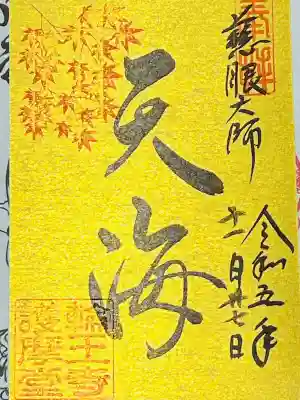 慈眼大師
天海
令和五年
十一月廿七日
輪王寺
護摩堂